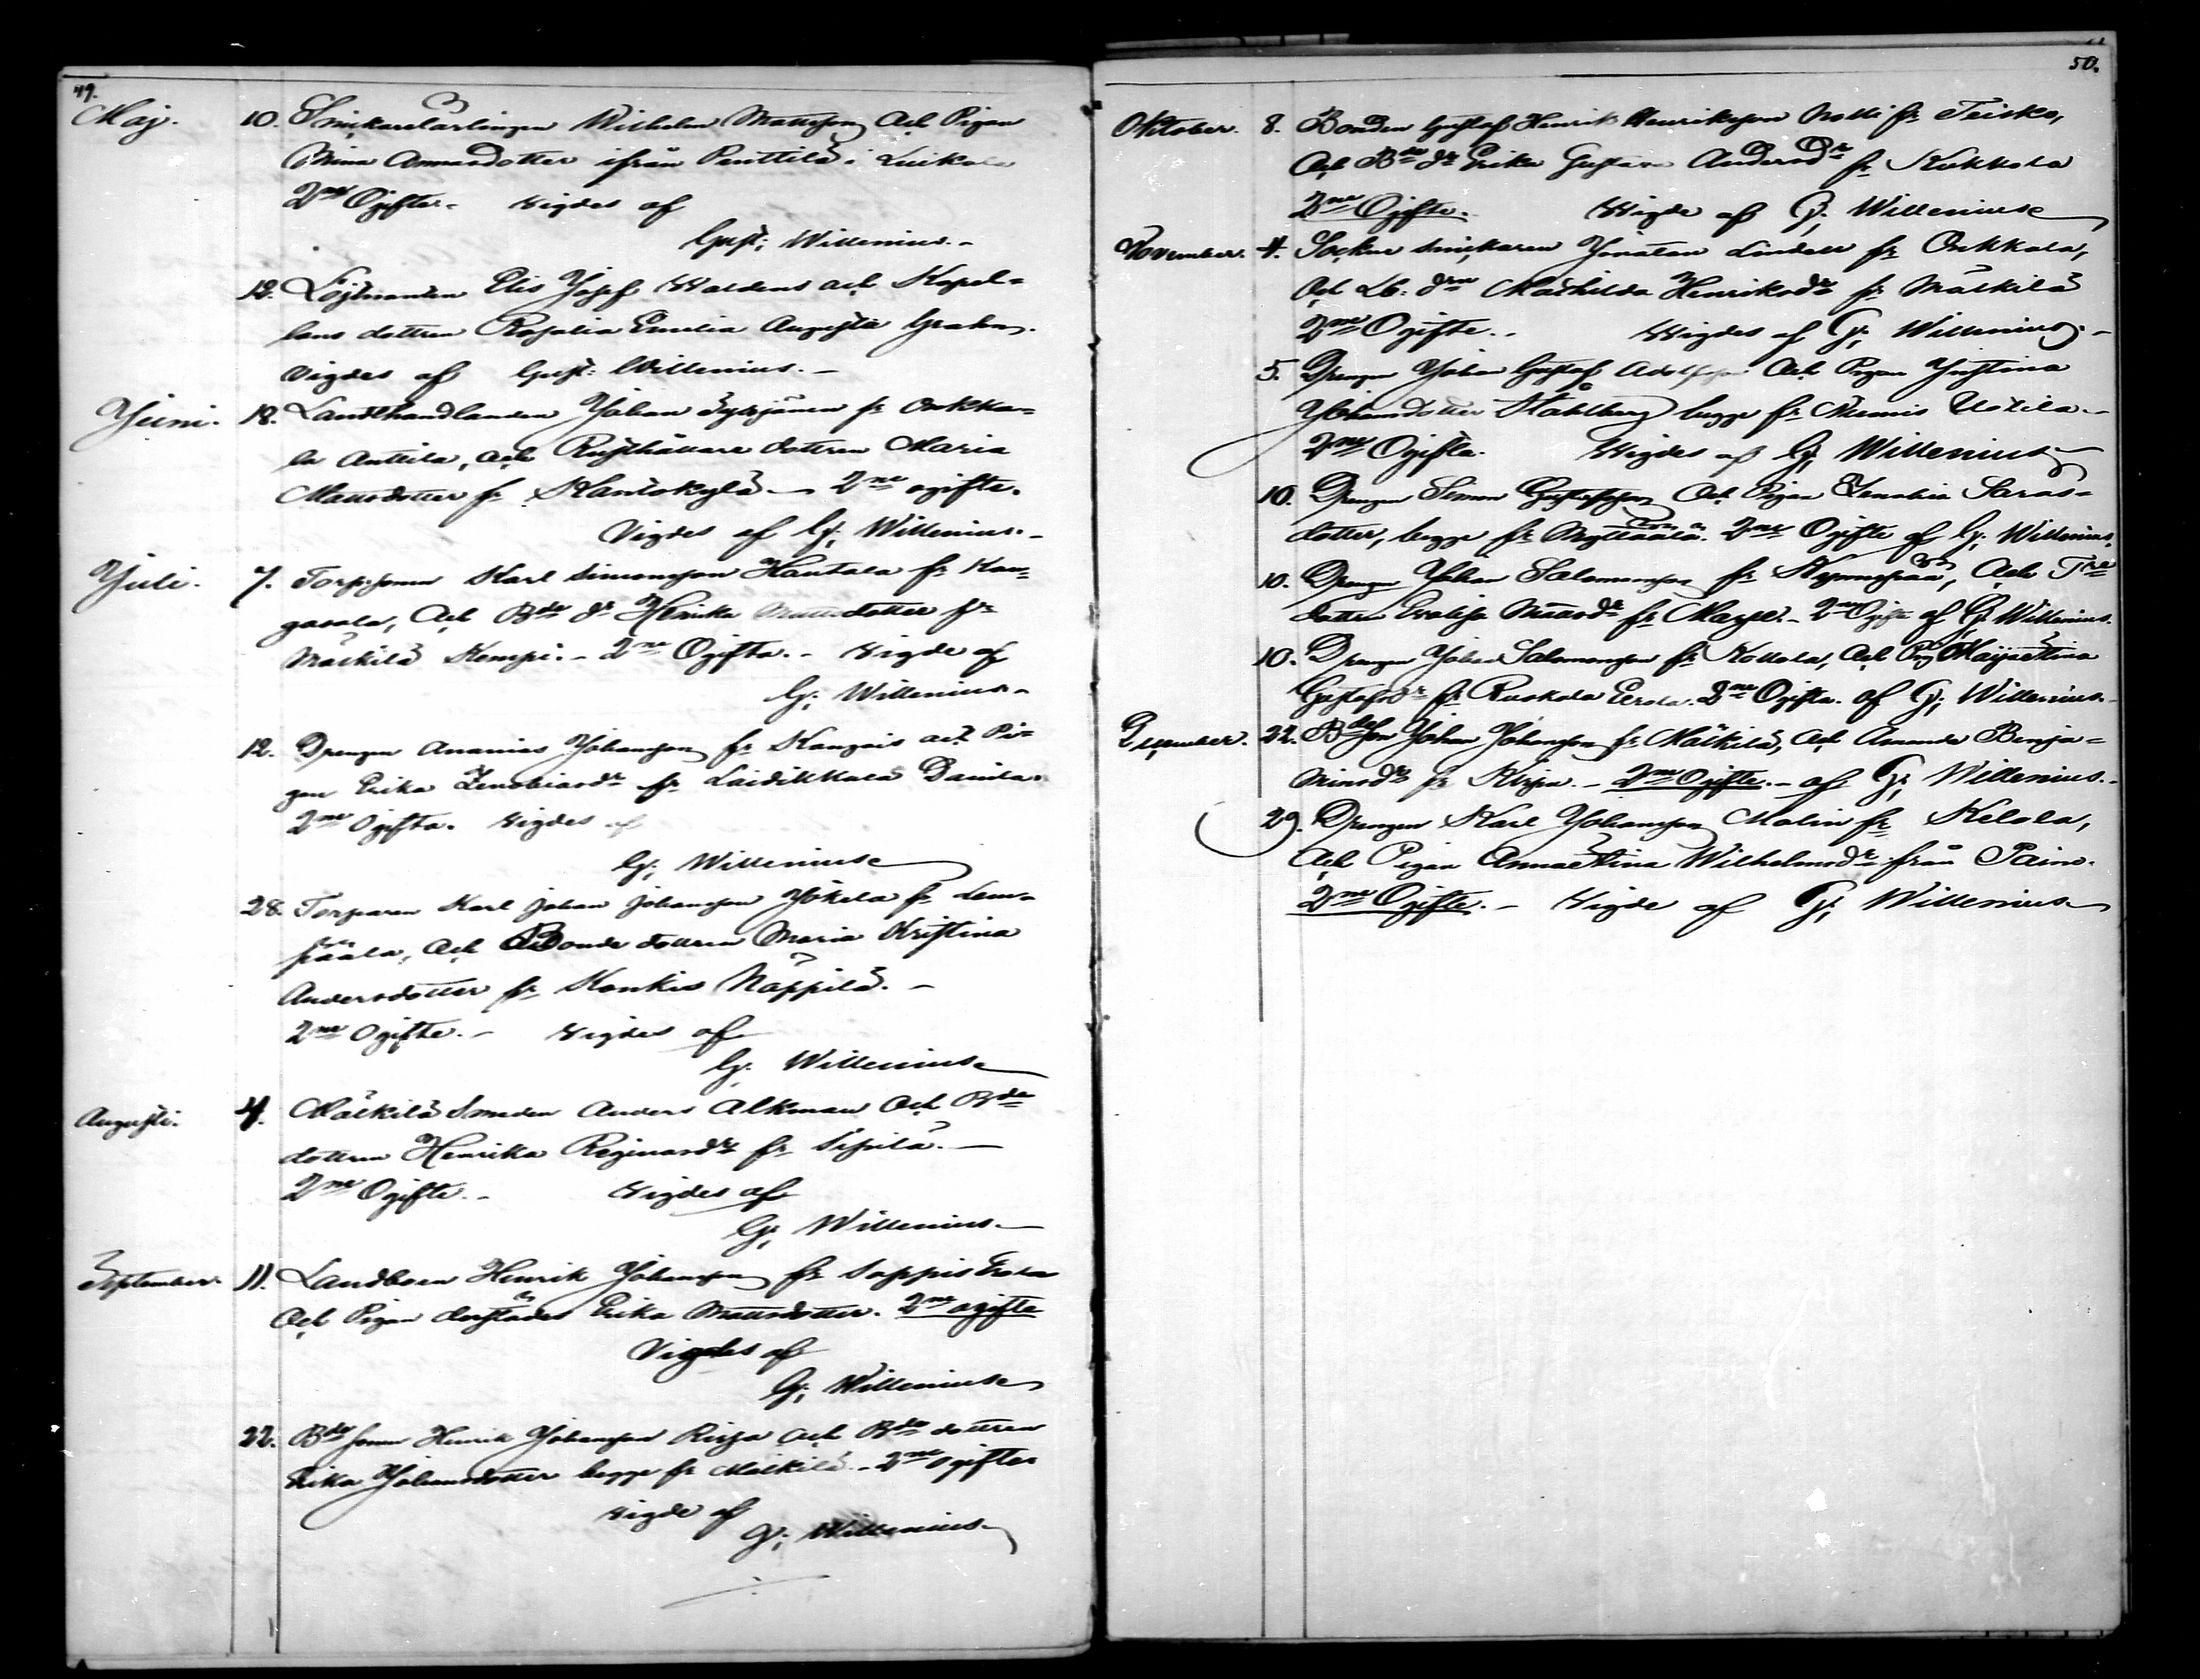 49.
Maj. 10. Snickarelärlingen Wilhelm Mattsson och Pigan
Mina Annasdotter ifrån Penttilä i Luikala
2ne Ogifte. Vigdes af
Gust: Willenius.-
12. Löjtnanten Elis Josef Waldens och Kapel=
lans dottren Rosalia Emelia Augusta Grahn.
Vigdes af Gust: Willenius.-
Juni. 18. Landthandlanden Johan fr Onkka=
la Anttila, och Rusthållare dottren Maria
Mattsdotter fr - 2ne ogifte.
Vigdes af G; Willenius.-
Juli. 7. Torp.sonen Karl Simonsson Hantala fr Kan=
gasala, Och Bde dr Henrika Mattsdotter fr
Mälkilä Kempi.- 2ne Ogifta.- Vigde af
G; Willenius.-
12. Drengen Ananias Johansson fr Kangais och Pi=
gan Erika Zenobiasdr fr Laidikkala Danila.
2ne Ogifta. Vigdes af
G; Willenius
28. Torparen Karl Johan Johansson Jokela fr Lem=
päälä, Och Bonde dottren Maria Kristina
Andersdotter fr Konkis Näppilä.-
2ne Ogifte.- Vigdes af
G. Willenius
Augusti. 4. Mälkilä Smeden Anders Alkman Och Bde
dottren Henrika Reginasdr fr Sipilä.-
2ne Ogifte.- Vigdes af
G; Willenius.-
September. 11. Landboen Henrik Johansson fr Sappis Erola
Och Pigan derstädes Erika Mattsdotter. 2ne ogifte
Vigdes af
G; Willenius
22. Bde sonen Henrik Johansson och Bde dottren
Erika Johansdotter begge fr Mälkilä.- 2ne ogifter
Vigde af
G; Willenius
50.
Oktober. 8. Bonden Gustaf Henrik Henriksson Nolli fr Teisko,
Och Bde dr Erika Gustava Andersdr fr Kokkola
2ne Ogifte. Vigde af G; Willenius
November. 4. Socken snickaren Jonatan Lindell fr Onkkala,
Och Lb: drn Mathilda Henriksdr fr Mälkilä
2ne Ogifte.. Vigdes af G; Willenius.-
5. Drengen Johan Gustaf Adolfsson Och Pigan Justina
Johansdotter Ståhlberg begge fr Niemis Uotila.-
2ne Ogifta. Vigdes af G; Willenius
10. Drengen Simon Gustafsson Och Pigan Zenobia Saras=
dotter, begge fr 2ne Ogifte af G; Willenius.
10. Drengen Johan Salomonsson fr Och Tre
dotter fr 2ne Ogifte af G; Willenius.
10. Drengen Johan Salomonsson fr Kottola, Och Pig Majastina
Gustafsdr fr Ruokola Erola. 2ne Ogifta. af G; Willenius.-
December. 22. Bdeson Johan Johansson fr Mälkilä, Och Amanda Benja=
minsdr fr - 2ne Ogifte.- af G; Willenius.-
29. Drengen Karl Johansson Malin fr Kelola,
Och Pigan Annastina Wilhelmsdr från Paino.
2ne Ogifte.- Vigde af G; Willenius